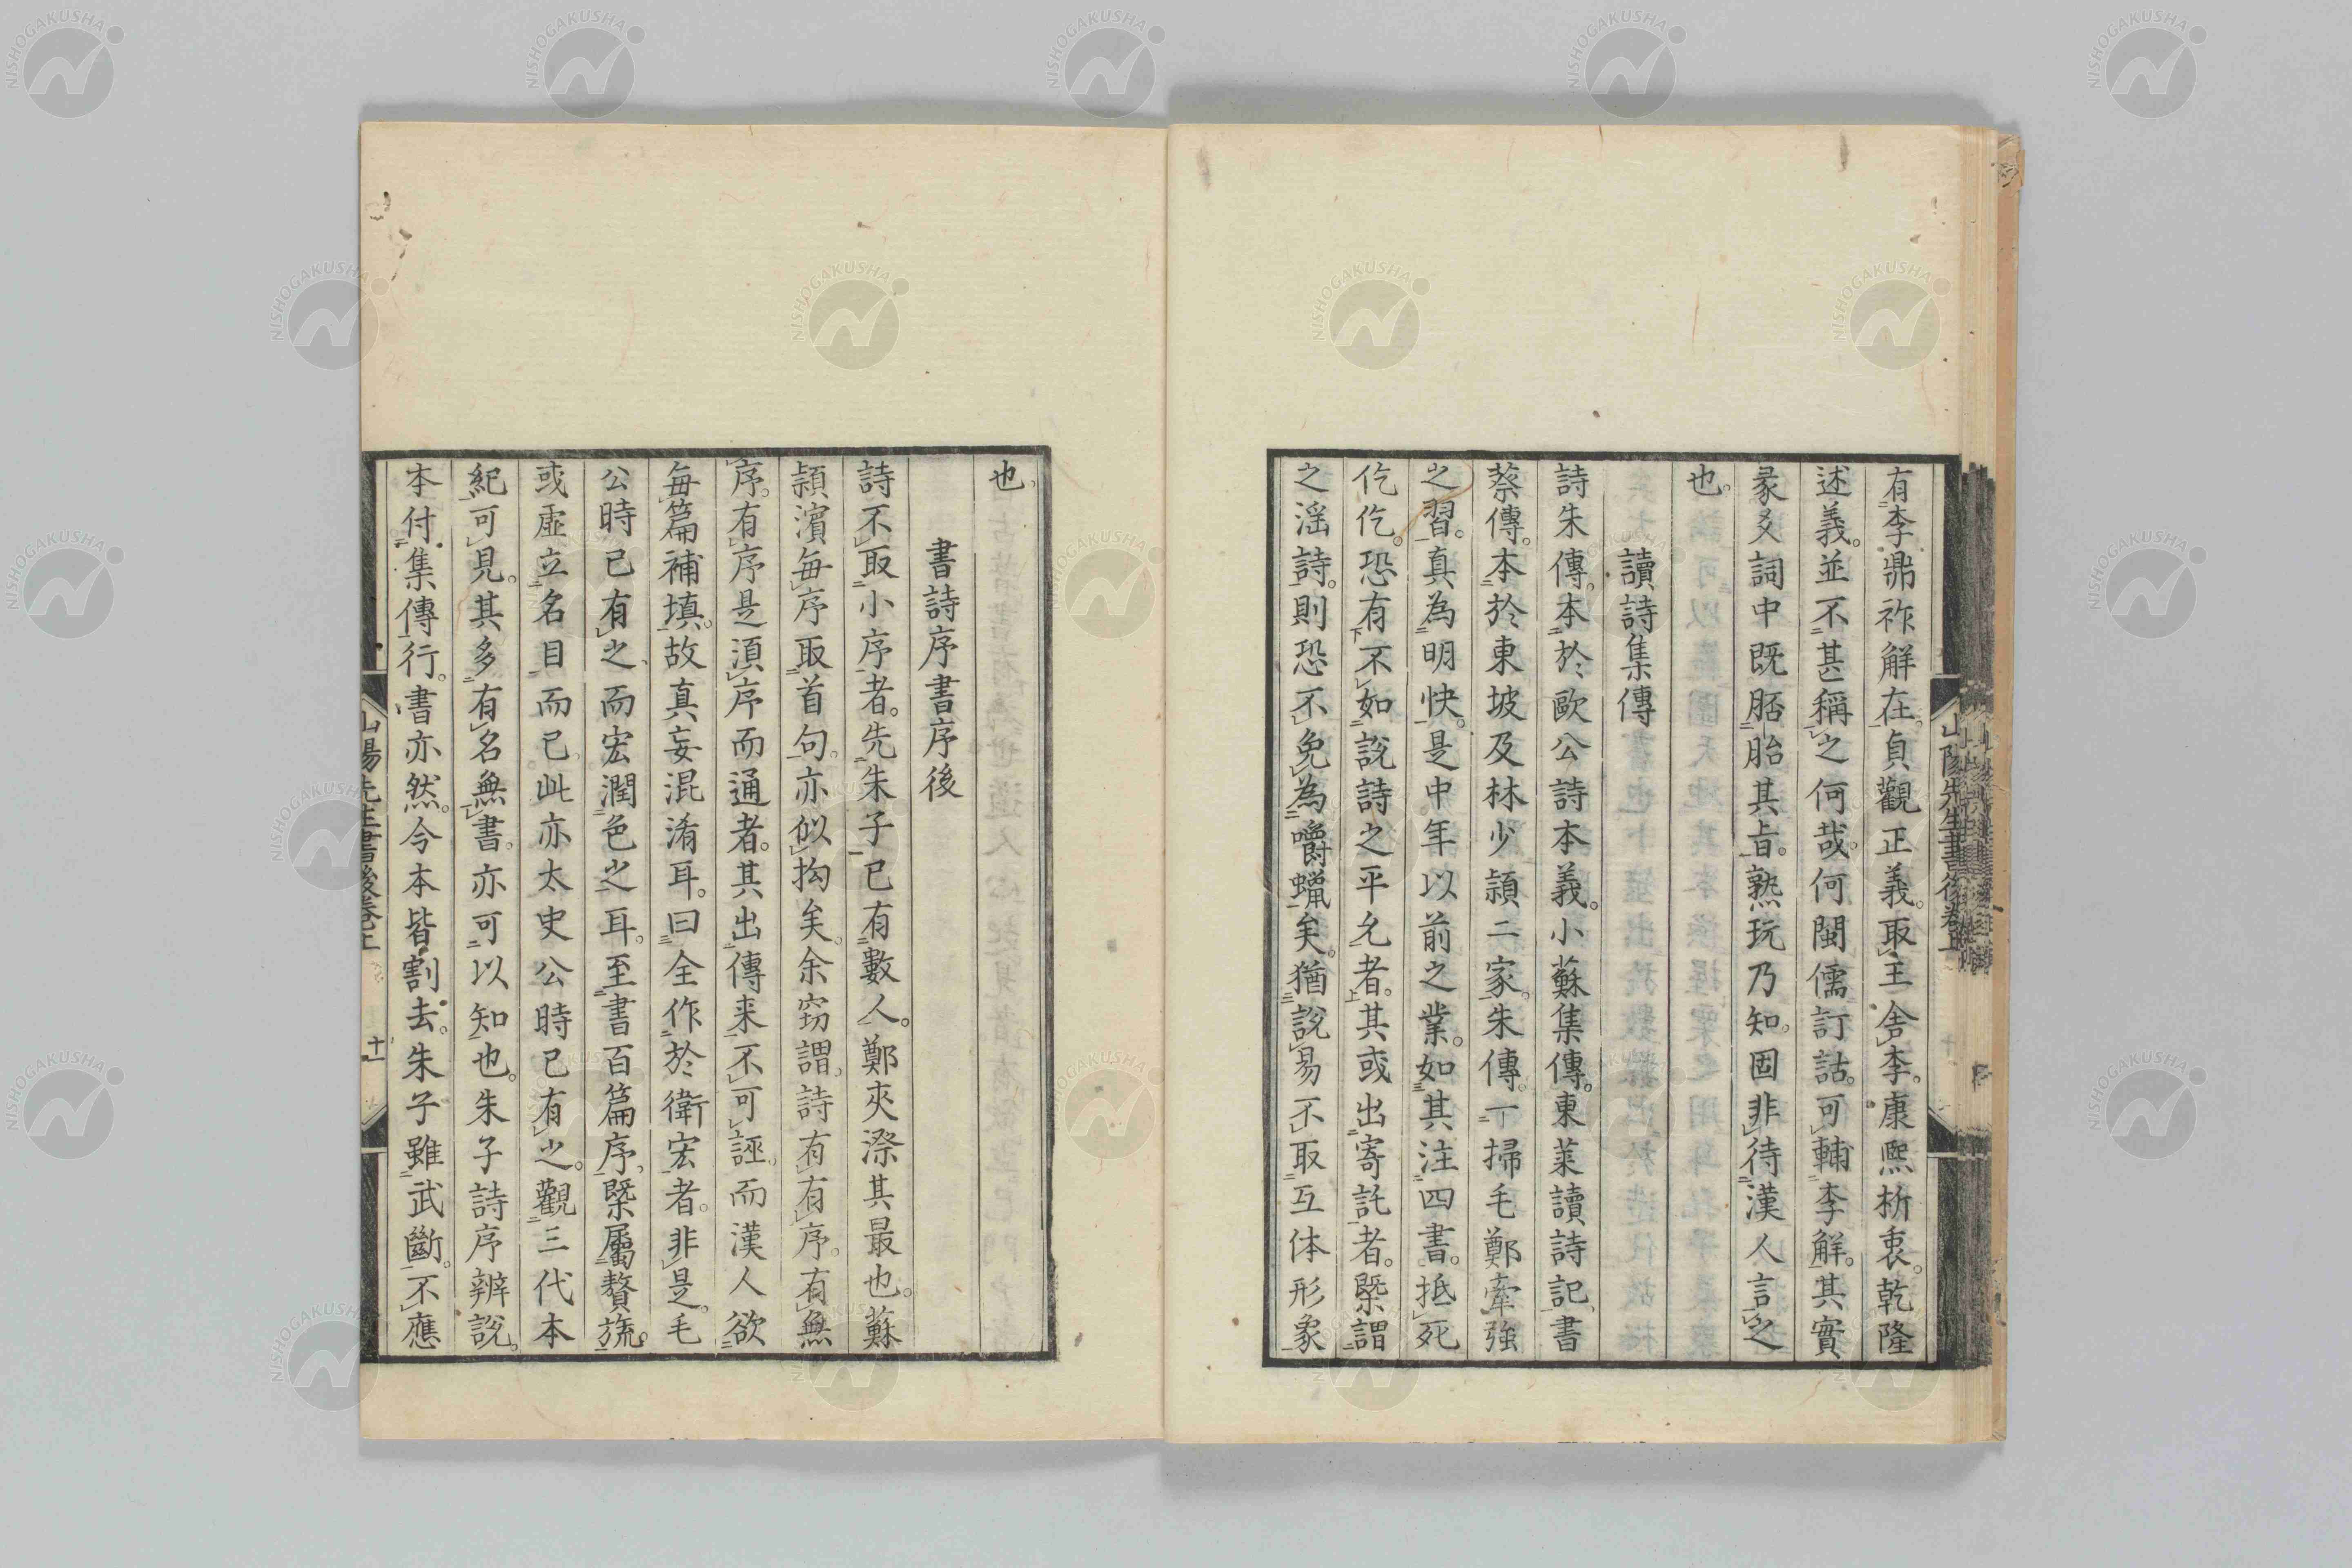 有李鼎祚解在。貞觀正義。取王舎李。康熙析衷。乾隆
述義。並不甚稱之何哉。何閩儒訂詁。可輔李解。其實
彖爻詞中既胚胎其旨。熟玩乃知。固非待漢人言之
也。
讀詩集傳
詩朱傳。本於歐公詩本義。小蘇集傳。東萊讀詩記、書
蔡傳。本於東坡及林少頴二家。朱傳。一掃毛鄭牽強
之習。真為明快。是中年以前之業。如其注四書。抵死
仡仡。恐有不如說詩之平允者。其或出寄託者。槩謂
之淫詩。則恐不免為嚼蠟矣。猶說易不取互体形象
山陽先生書後卷上
也。
書詩序書序後
詩不取小序者。先朱子已有數人。鄭夾漈其最也。蘇
頴濱每序取首句。亦似拘矣。余窃謂。詩有有序。有無
序。有序是湏序而通者。其出傳来。不可誣。而漢人欲
毎篇補填。故真妄混淆耳。曰全作於衛宏者。非是。毛
公時已有之、而宏潤色之耳。至書百篇序、槩屬贅旒。
或虛立名目而已。此亦太史公時已有之。觀三代本
紀可見。其多有名無書。亦可以知也。朱子詩序辨說。
本付集傳行。書亦然。今本皆割去。朱子雖武斷。不應
山陽先生書後卷上
十一
NISHOGAKUSHA